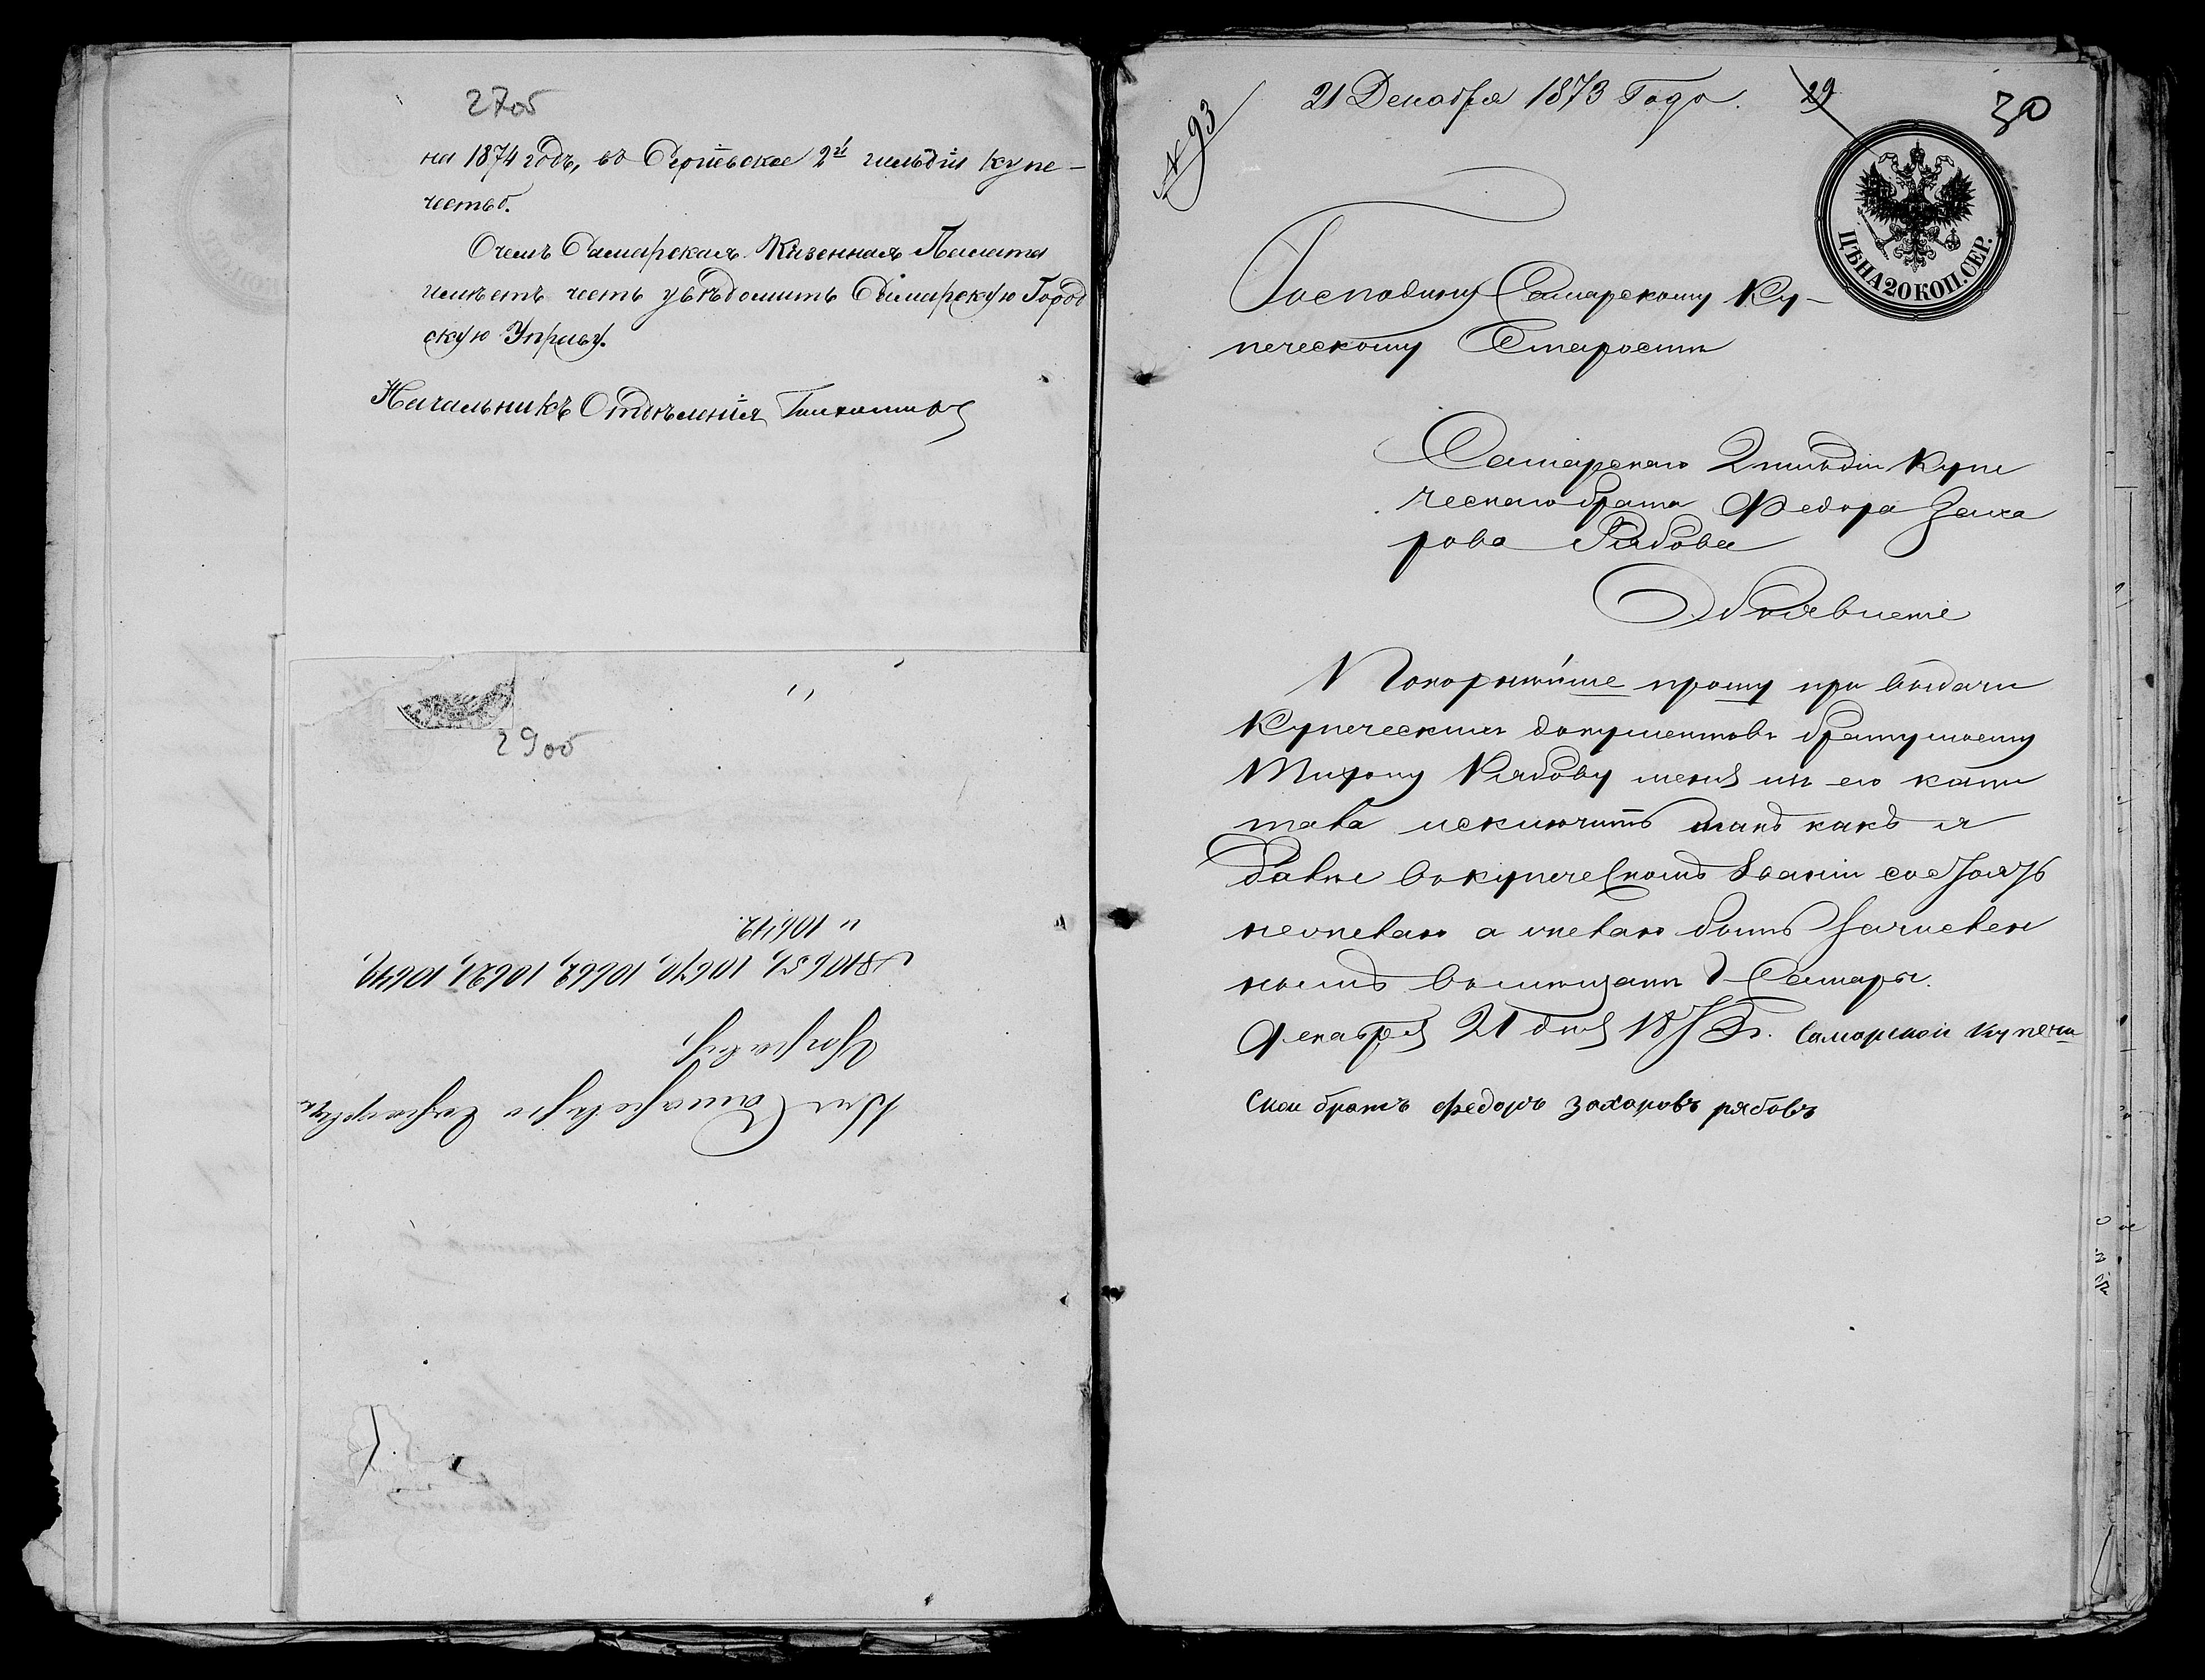 27об
на 1874 годъ, въ Сергіевское 2й гильдіи купе-
чество.
О чемъ Самарская Казенная Палата
имѣетъ честь увѣдомить Самарскую Город
скую Управу.
Начальникъ Отдѣленія
29об
Въ Самарскую Городскую
Управу
№ 10651, 10670, 10662, 10621, 10640,
и 10642.
№ 93
21 Декабря 1873 Года.
29
30
ЦѢНА 20 КОП. СЕР.
Господину Самарскому Ку-
печескому Старости
Самарскаго 2 гильдіи Купе
ческаго брата Федора Заха
рова Рябова
Объявленіе
Покорнѣйше прошу при выдачи
Купеческихъ документовъ брату моему
Тихону Рябову меня изъ его капи
тала исключить такъ какъ я
далѣе в купеческомъ званіи состоять
не желаю а желаю быть зачислен
нымъ в мещани г Самары.
Декабря 21 дня 1873 г. Самарскои купече
скои братъ федоръ захаровъ рябовъ